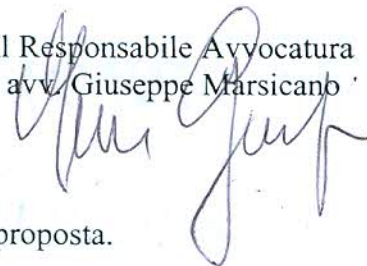 l Responsabile Avvocatura
avv. Giuseppe Marsicano
proposta.